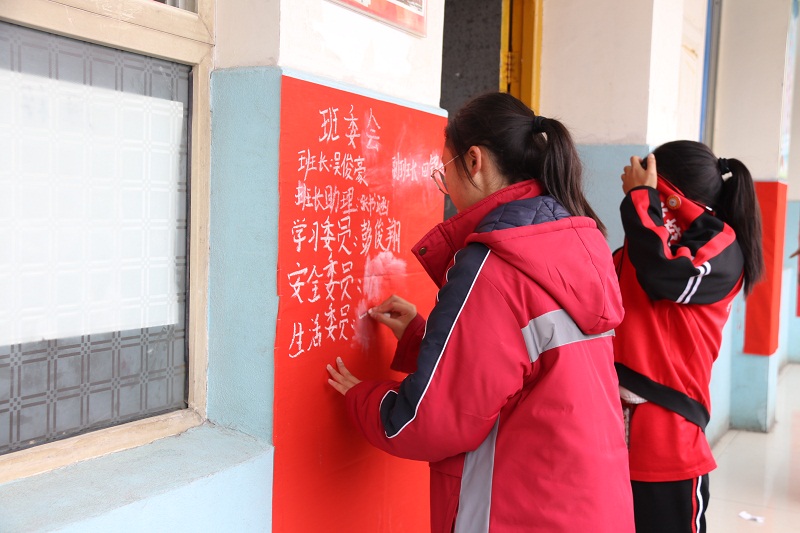 班委会
班长:吴俊豪 副班长:田
班长助理:张书涵
学习委员:彭俊翔
安全委员:
生活委员: